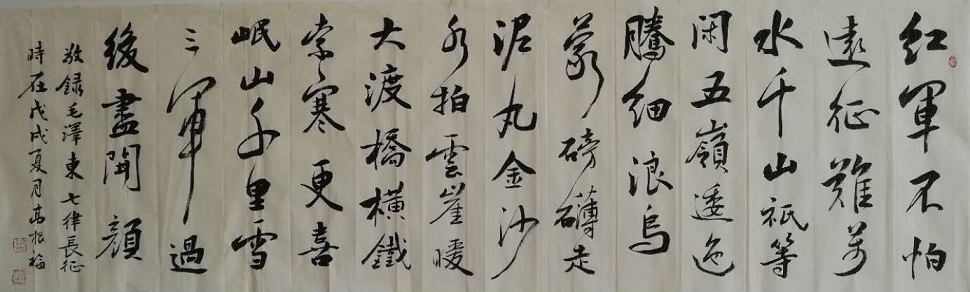 紅軍不怕
遠征難萬
水千山祇等
閑五嶺逶迤
騰細浪烏
蒙磅礴走
泥丸金沙
水拍雲崖暖
大渡橋橫鐵
索寒更喜
岷山千里雪
三軍過
後盡開顔
敬録毛澤東七律長征
時在戊戌夏月高根福